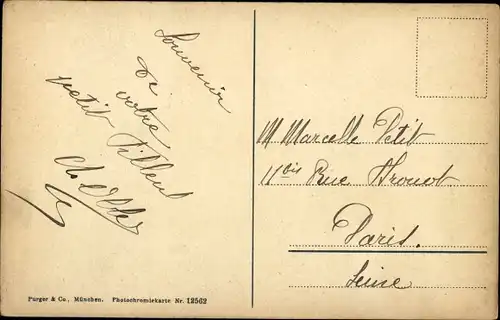 Souvenir
de
votre
petit Filleul
M Marcelle Petit
11bis Rue Drouot
Paris.
Seine
Purger & Co., München. Photochromiekarte Nr. 12562